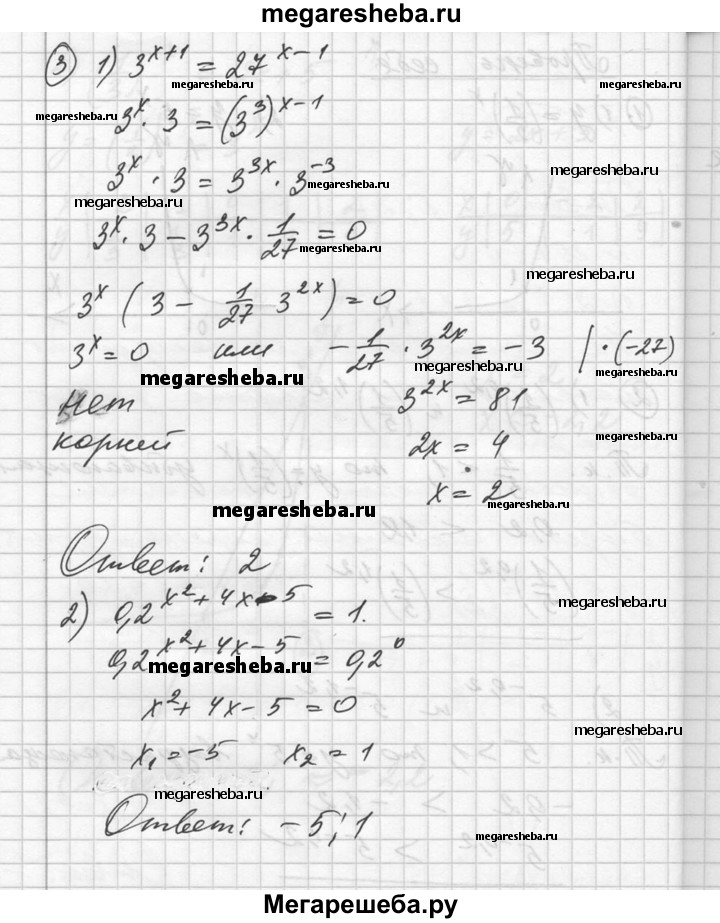 megaresheba.ru
③ 1) 3^{x+1} = 27^{x-1}
megaresheba.ru
megaresheba.ru
3^x · 3 = (3^3)^{x-1}
megaresheba.ru
3^x · 3 = 3^{3x} · 3^{-3}
megaresheba.ru
megaresheba.ru
3^x · 3 - 3^{3x} · 1/27 = 0
megaresheba.ru
megaresheba.ru
3^x (3 - 1/27 3^{2x}) = 0
3^x = 0 или - 1/27 · 3^{2x} = -3 | · (-27)
megaresheba.ru
megaresheba.ru
megaresheba.ru
нет 3^{2x} = 81
корней 2x = 4
megaresheba.ru
x = 2
megaresheba.ru
megaresheba.ru
Ответ: 2
2) 0,2^{x^2+4x-5} = 1.
megaresheba.ru
0,2^{x^2+4x-5} = 0,2^0
megaresheba.ru
x^2 + 4x - 5 = 0
megaresheba.ru
x_1 = -5 x_2 = 1
megaresheba.ru
Ответ: -5; 1
megaresheba.ru
Мегарешеба.ру